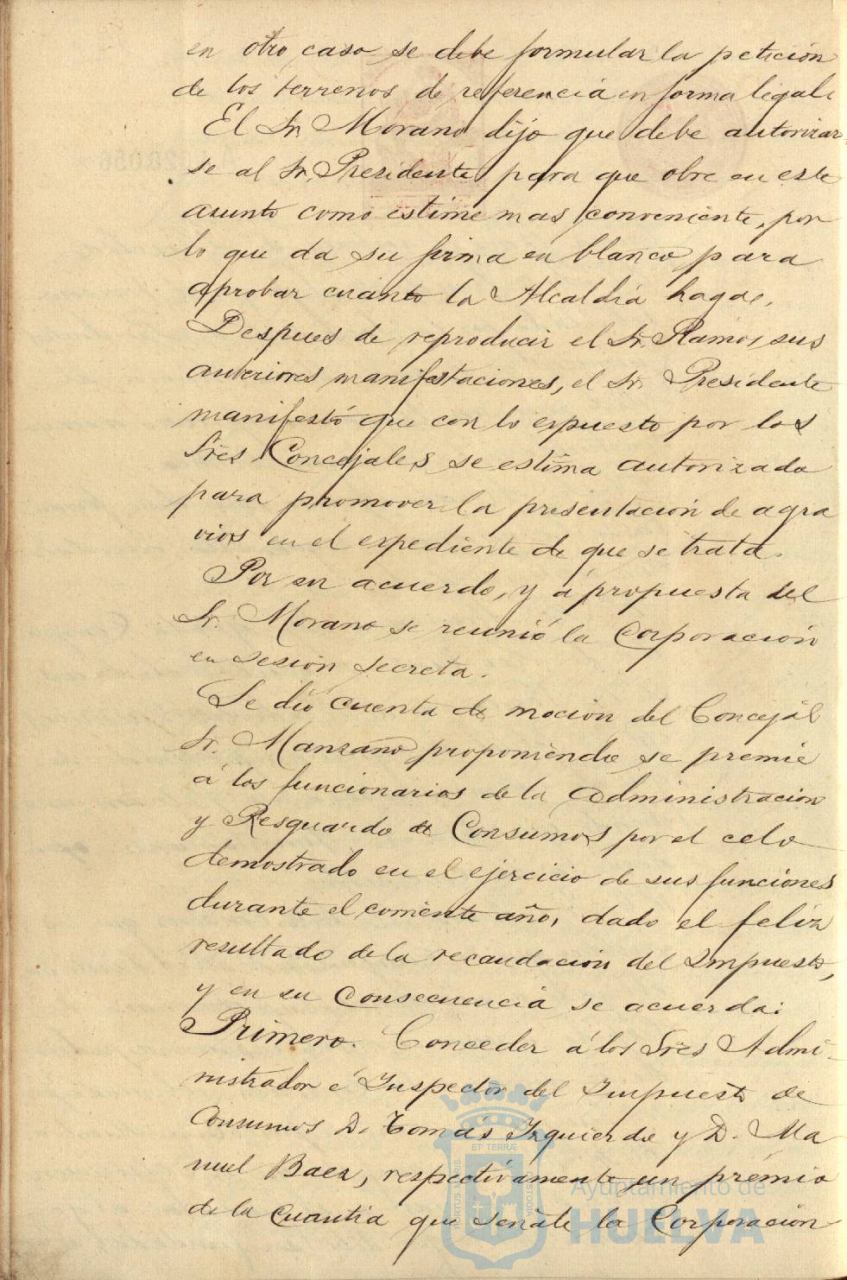 en otro caso se debe formular la petición
de los terrenos de referencia en forma legal.
El Sr. Morano dijo que debe autorizar-
se al Sr. Presidente para que obre en este
asunto como estime mas conveniente, por
lo que da su firma en blanco para
aprobar cuanto la Alcaldía haga.
Despues de reproducir el Sr. Ramos sus
anteriores manifestaciones, el Sr. Presidente
manifestó que con lo expuesto por los
Sres Concejales se estima autorizado
para promover la presentación de agra
vios en el expediente de que se trata.
Por un acuerdo, y á propuesta del
Sr. Morano se reunió la Corporación
en sesión secreta.
Se dió cuenta de moción del Concejál
Sr. Manzano proponiendo se premie
á los funcionarios de la Administración
y Resguardo de Consumos por el celo
demostrado en el ejercicio de sus funciones
durante el corriente año, dado el feliz
resultado de la recaudación del Impuesto,
y en su consecuencia se acuerda:
Primero. Conceder á los Sres Admi-
nistrador é Inspector del Impuesto de
Consumos D. Tomás Izquierdo y D. Ma
nuel Baez, respectivamente un prémio
de la cuantia que señale la Corporación
Ayuntamiento de
HUELVA